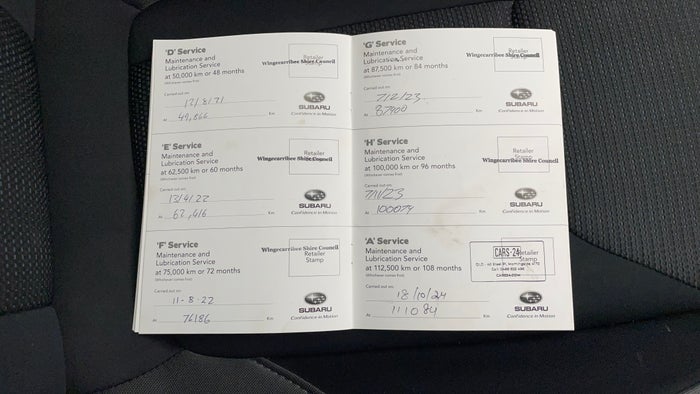 'D' Service
Maintenance and
Lubrication Service
at 50,000 km or 48 months
(Whichever comes first)
Retailer
Wingecarribee Shire Council
Carried out on:
At 49,866 Km
SUBARU
Confidence in Motion
'E' Service
Maintenance and
Lubrication Service
at 62,500 km or 60 months
(Whichever comes first)
Retailer
Wingecarribee Shire Council
Carried out on:
13/4/22
At 62,416 Km
SUBARU
Confidence in Motion
'F' Service
Maintenance and
Lubrication Service
at 75,000 km or 72 months
(Whichever comes first)
Wingecarribee Shire Council
Retailer
Stamp
Carried out on:
11-8-22
At 76186 Km
SUBARU
Confidence in Motion
'G' Service
Maintenance and
Lubrication Service
at 87,500 km or 84 months
(Whichever comes first)
Retailer
Wingecarribee Shire Council
Carried out on:
7/2/23
At 87900 Km
SUBARU
Confidence in Motion
'H' Service
Maintenance and
Lubrication Service
at 100,000 km or 96 months
(Whichever comes first)
Retailer
Stamp
Wingecarribee Shire Council
Carried out on:
7/11/23
At 100079 Km
SUBARU
Confidence in Motion
'A' Service
Maintenance and
Lubrication Service
at 112,500 km or 108 months
(Whichever comes first)
CARS-24
Retailer
Stamp
Carried out on:
18/10/24
At 111084 Km
SUBARU
Confidence in Motion